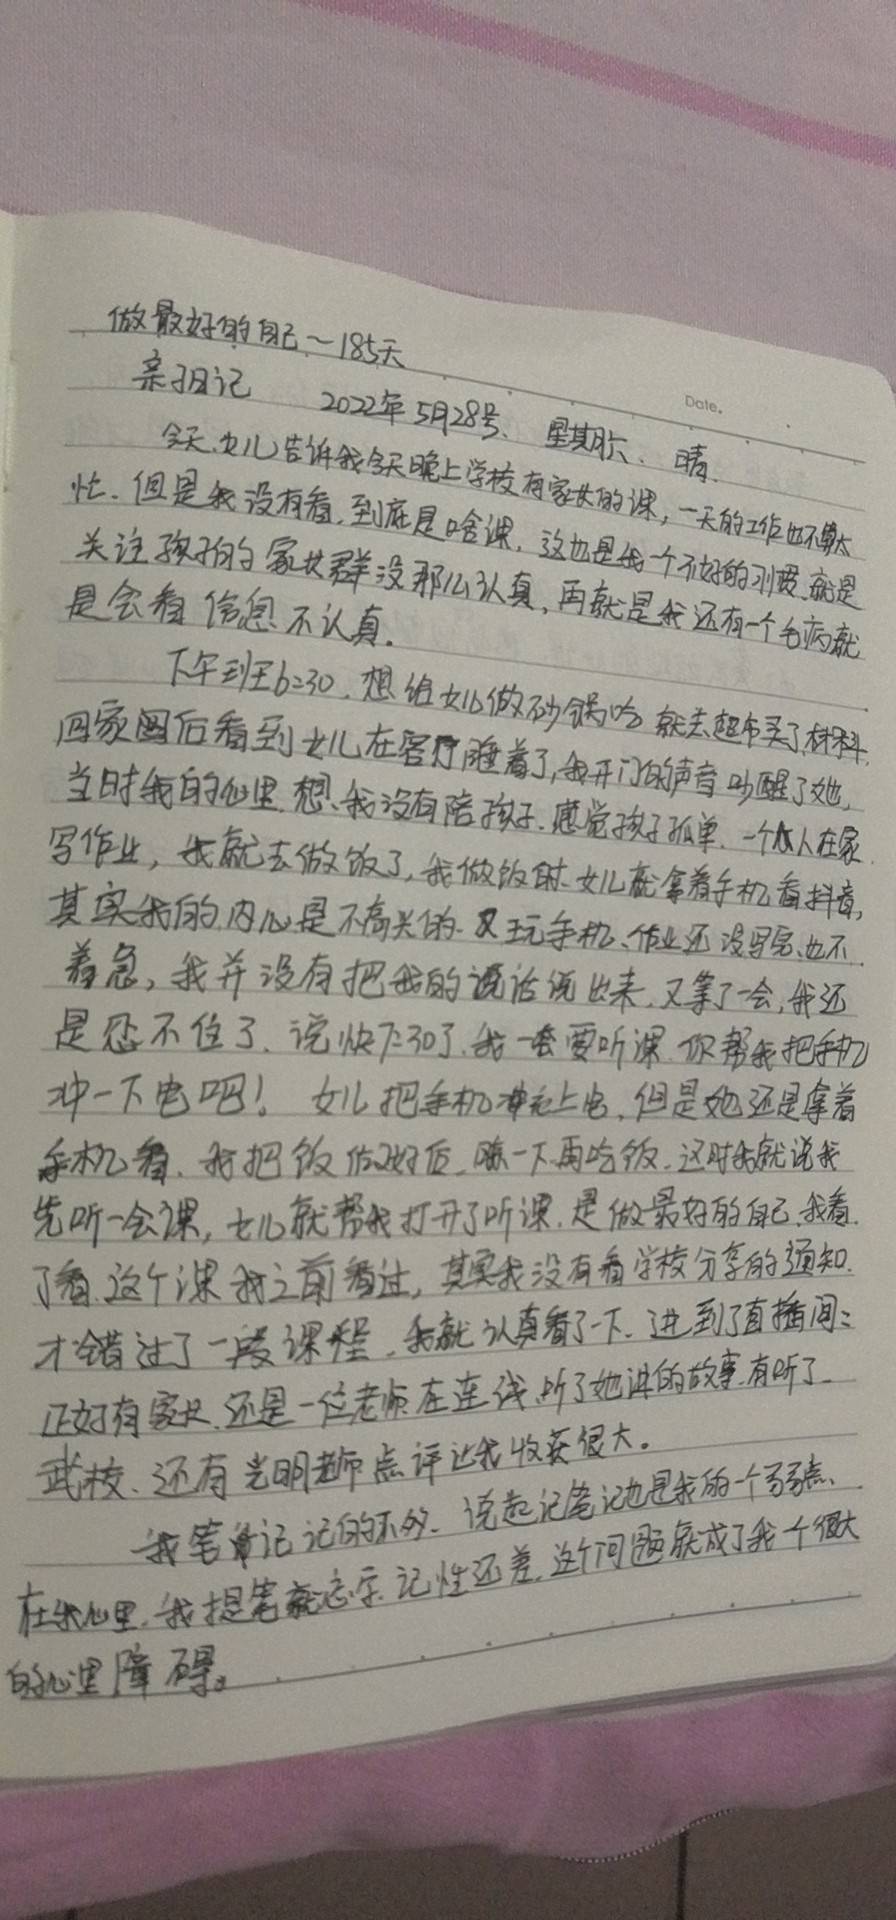 做最好的自己～185天
Date.
亲子日记 2022年5月28号、星期六、晴.
今天.女儿告诉我今天晚上学校有家长的课，一天的工作也不算太
忙.但是我没有看.到底是啥课.这也是我一个不好的习惯.就是
关注孩子的家长群没那么认真,再就是我还有一个毛病就
是会看信息不认真.
下午到王6:30.想给女儿做砂锅吃 就去超市买了材料.
回家后看到女儿在客厅睡着了,我开门的声音吵醒了她,
当时我的心里想.我没有陪孩子.感觉孩子孤单.一个人在家.
写作业,我就去做饭了,我做饭时.女儿就拿着手机看抖音,
其实我的内心是不高兴的.又玩手机、作业还没写完、也不
着急,我并没有把我的话说出来.又等了一会,我还
是忍不住了.说快7:30了.我一会要听课.你帮我把手机
冲一下电吧! 女儿把手机冲上电.但是她还是拿着
手机看.我把饭做好后.晾一下再吃饭.这时我就说我
先听一会课,女儿就帮我打开了听课.是做最好的自己.我看.
了看.这个课我之前看过,其实我没有看学校分享的通知.
才错过了一段课程.我就认真看了一下.进到了直播间:
正好有家长.还是一位老师在连线.听了她讲的故事.有听了
武校、还有光明老师点评让我收获很大。
我笔记记的不多.说起记笔记也是我的一个弱点.
在我心里.我提笔就忘字.记性还差.这个问题就成了我一个很大
的心里障碍。